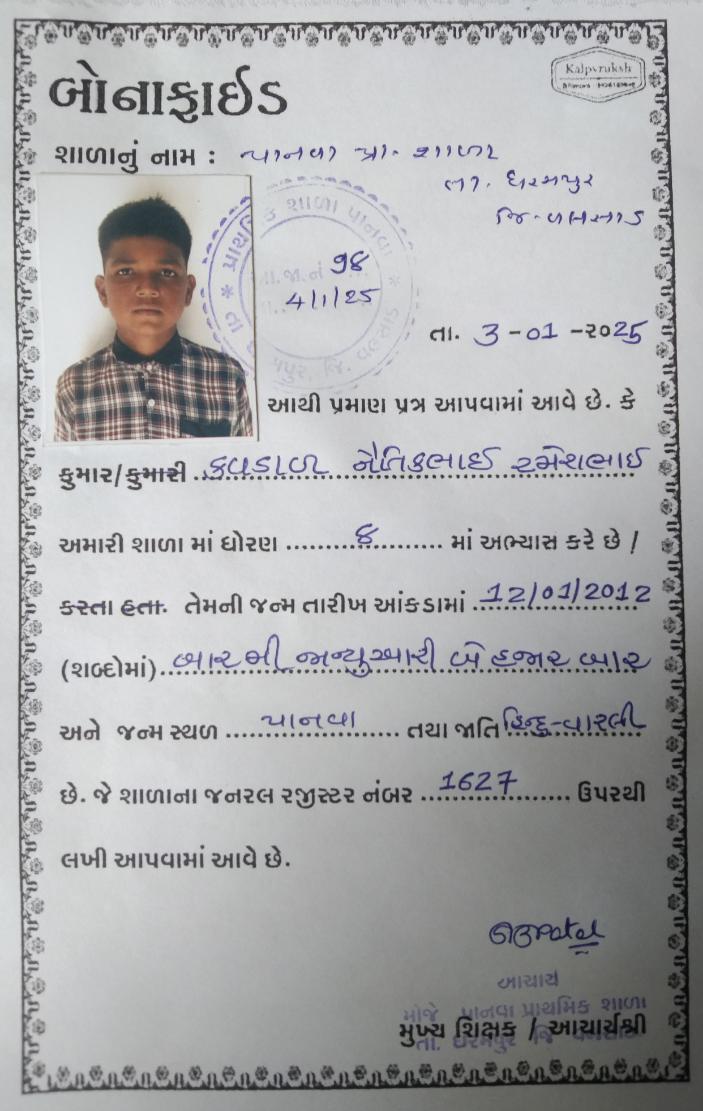 Kalpvruksh
બોનાફાઈડ
શાળાનું નામ : પાનવા પ્રા. શાળા
તા. ધરમપુર
જિ-વલસાડ
પ્રાથમિક શાળા પાનવા
જા.નં ૧૪
4/1/25
જિ. વલસાડ
તા. 3-01-૨૦25
આથી પ્રમાણ પ્રત્ર આપવામાં આવે છે. કે
કુમાર/કુમારી કવડાળ નૈતિકભાઈ રમેશભાઈ
અમારી શાળા માં ધોરણ ૪ માં અભ્યાસ કરે છે /
કરતા હતા. તેમની જન્મ તારીખ આંકડામાં 12/01/2012
(શબ્દોમાં) બારમી જાન્યુઆરી બે હજાર બાર
અને જન્મ સ્થળ પાનવા તથા જાતિ હિન્દુ-વારલી
છે. જે શાળાના જનરલ રજીસ્ટર નંબર 1627 ઉપરથી
લખી આપવામાં આવે છે.
આચાર્ય
મોજે પાનવા પ્રાથમિક શાળા
મુખ્ય શિક્ષક / આચાર્યશ્રી
તા. ધરમપુર જિ વલસાડ